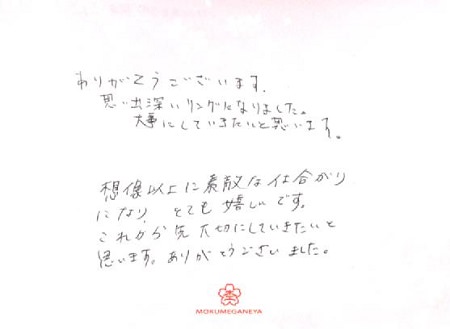 ありがとうございます.
思い出深いリングになりました。
大事にしていきたいと思います。
想像以上に素敵な仕合がり
になり、とても嬉しいです。
これから先大切にしていきたいと
思います。ありがとうございました。
MOKUMEGANEYA